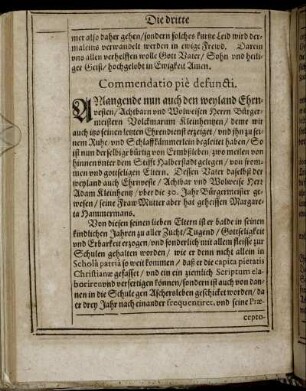 Die dritte
mer also daher gehen/sondern solches kurtze Leid wird der-
maleins verwandelt werden in ewige Frewd. Darein
uns allen verhelffen wolle Gott Vater/ Sohn und heili-
ger Geist/ hochgelobt in Ewigkeit Amen.
Commendatio piè defuncti.
ANlangende nun auch den weyland Ehrn-
vesten/ Achtbarn und Wolweisen Herrn Bürger-
meistern Volckmarum Kleinhempen/ deme wir
auch itzo seinen letzten Ehrendienst erzeiget/ und ihn zu sei-
nem Ruhe und Schlaffkämmerlein begleitet haben/ So
ist nun derselbige bürtig von Ermbsleben/ zwo meilen von
hinnen unter dem Stifft Halberstadt gelegen/ von from-
men und gottseligen Eltern. Dessen Vater daselbst der
weyland auch Ehrnveste/ Achtbar und Wolweise Herr
Adam Kleinhemp/ über die 30. Jahr Bürgermeister ge-
wesen/ seine Fraw Mutter aber hat geheissen Margare-
ta Hammermans.
Von diesen seinen lieben Eltern ist er balde in seinen
kindlichen Jahren zu aller Zucht/ Tugend/ Gottseligkeit
und Erbarkeit erzogen/ und sonderlich mit allem fleisse zur
Schulen gehalten worden/ wie er denn nicht allein in
Scholâ patriâ so weit kommen/ daß er die capita pietatis
Christianæ gefasset/ und ein ein ziemlich Scriptum ela-
borirē und verfertigen können/ sondern ist auch von dan-
nen in die Schule gen Ascherslebē geschicket worden/ da
er drey Jahr nach einander frequentiret, und seine Præ-
cepto-